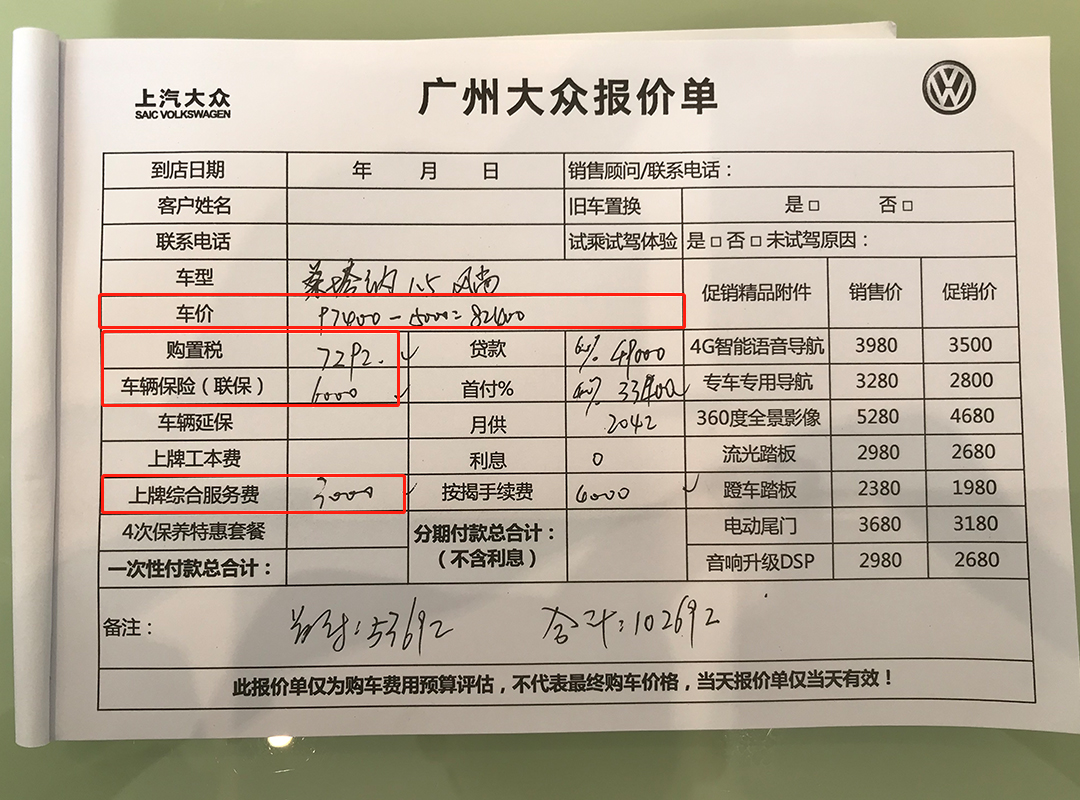 上汽大众
SAIC VOLKSWAGEN
广州大众报价单
到店日期 年 月 日 销售顾问/联系电话：
客户姓名 旧车置换 是□ 否□
联系电话 试乘试驾体验 是□否□未试驾原因：
车型 桑塔纳 1.5 风尚 促销精品附件 销售价 促销价
车价 97400 - 15000 = 82400
购置税 7292 贷款 60% 49000 4G智能语音导航 3980 3500
车辆保险（联保） 6000 首付% 40% 33400 专车专用导航 3280 2800
车辆延保 月供 2042 360度全景影像 5280 4680
上牌工本费 利息 0 流光踏板 2980 2680
上牌综合服务费 3000 按揭手续费 4000 蹬车踏板 2380 1980
4次保养特惠套餐 分期付款总合计：（不含利息） 电动尾门 3680 3180
一次性付款总合计： 音响升级DSP 2980 2680
备注： 首付：53692 合计：102692
此报价单仅为购车费用预算评估，不代表最终购车价格，当天报价单仅当天有效！